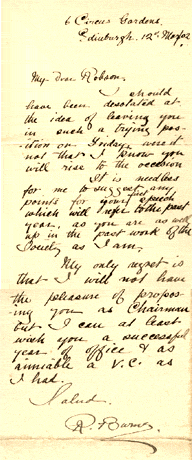 6 Circus Gardens,
Edinburgh. 12th May/02
My dear Robson,
I should
have been desolated at
the idea of leaving you
in such a trying pos-
ition on Friday were it
not that I know you
will rise to the occasion
It is needless
for me to suggest any
points for your speech
which will refer to the past
year, as you are as well
up in the past work of the
Society as I am.
My only regret is
that I will not have
the pleasure of propos-
ing you as Chairman
but I can at least
wish you a successful
year of office & as
amiable a V.C. as
I had.
Salud.
R.